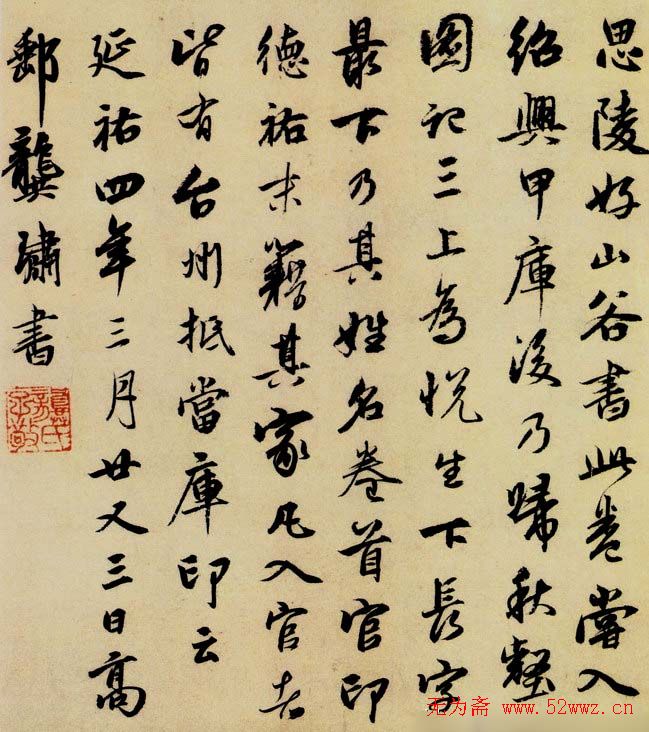 思陵好山谷書此卷嘗入
紹興甲庫後乃歸秋壑
圖記三上為悅生下長字
最下乃其姓名卷首官印
德祐末籍其家凡入官者
皆有台州抵當庫印云
延祐四年三月廿又三日高
郵龔璛書
无为斋 www.52wwz.cn